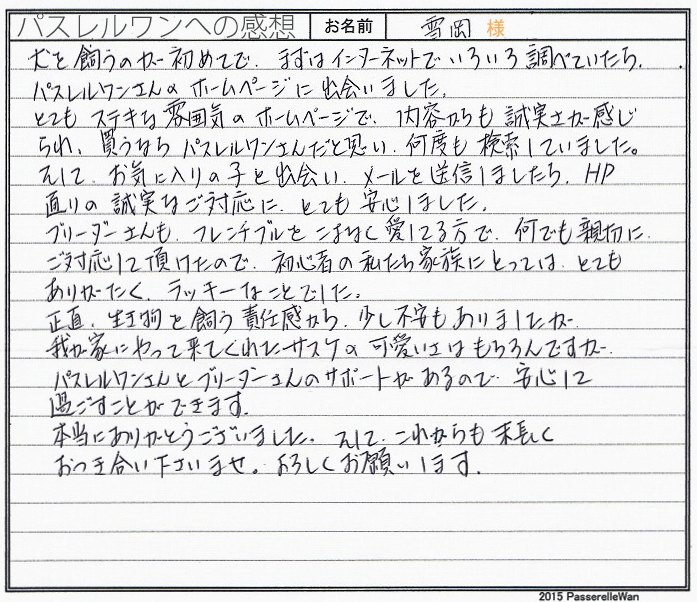 パスレルワンへの感想 お名前 雪岡 様
犬を飼うのが初めてで、まずはインターネットでいろいろ調べていたら、
パスレルワンさんのホームページに出会いました。
とてもステキな雰囲気のホームページで、内容からも誠実さが感じ
られ、買うならパスレルワンさんだと思い、何度も検索していました。
そして、お気に入りの子と出会い、メールを送信しましたら、HP
通りの誠実なご対応に、とても安心しました。
ブリーダーさんも、フレンチブルをこよなく愛してる方で、何でも親切に
ご対応して頂けたので、初心者の私たち家族にとっては、とても
ありがたく、ラッキーなことでした。
正直、生き物を飼う責任感から、少し不安もありましたが、
我が家にやって来てくれたサスケの可愛いさはもちろんですが、
パスレルワンさんとブリーダーさんのサポートがあるので、安心して
過ごすことができます。
本当にありがとうございました。そして、これからも末長く
おつき合い下さいませ。よろしくお願いします。
2015 PasserelleWan